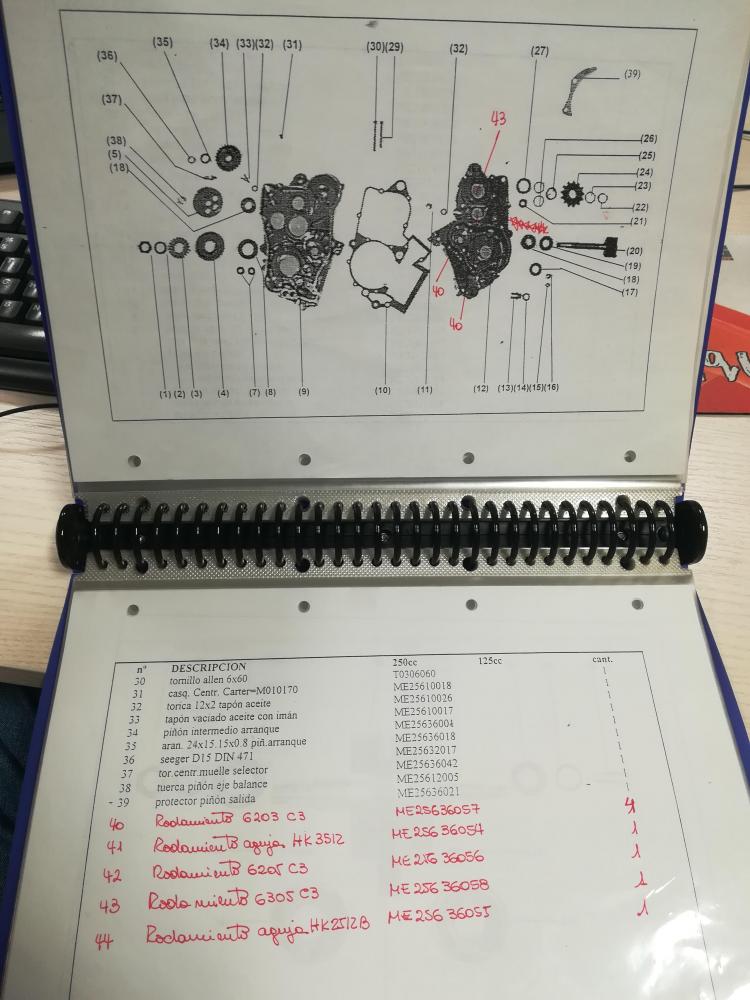 (35) (34) (33)(32) (31) (30)(29) (32) (27)
(36) (39)
(37) 43
(38) (26)
(5) (25)
(18) (24)
(23)
(22)
(21)
(20)
(19)
40 (18)
(17)
40
(1) (2) (3) (4) (7) (8) (9) (10) (11) (12) (13)(14)(15)(16)
nº DESCRIPCION 250cc 125cc cant.
30 tornillo allen 6x60 T0306060 1
31 casq. Centr. Carter=M010170 ME25610018 1
32 torica 12x2 tapón aceite ME25610026 1
33 tapón vaciado aceite con imán ME25610017 1
34 piñón intermedio arranque ME25636004 1
35 aran. 24x15.15x0.8 piñ.arranque ME25636018 1
36 seeger D15 DIN 471 ME25632017 1
37 tor.centr.muelle selector ME25636042 1
38 tuerca piñón eje balance ME25612005 1
- 39 protector piñón salida ME25636021 1
40 Rodamiento 6203 C3 ME25636057 4
41 Rodamiento aguja HK3512 ME25636054 1
42 Rodamiento 6205 C3 ME25636056 1
43 Rodamiento 6305 C3 ME25636058 1
44 Rodamiento aguja HK2512B ME25636055 1